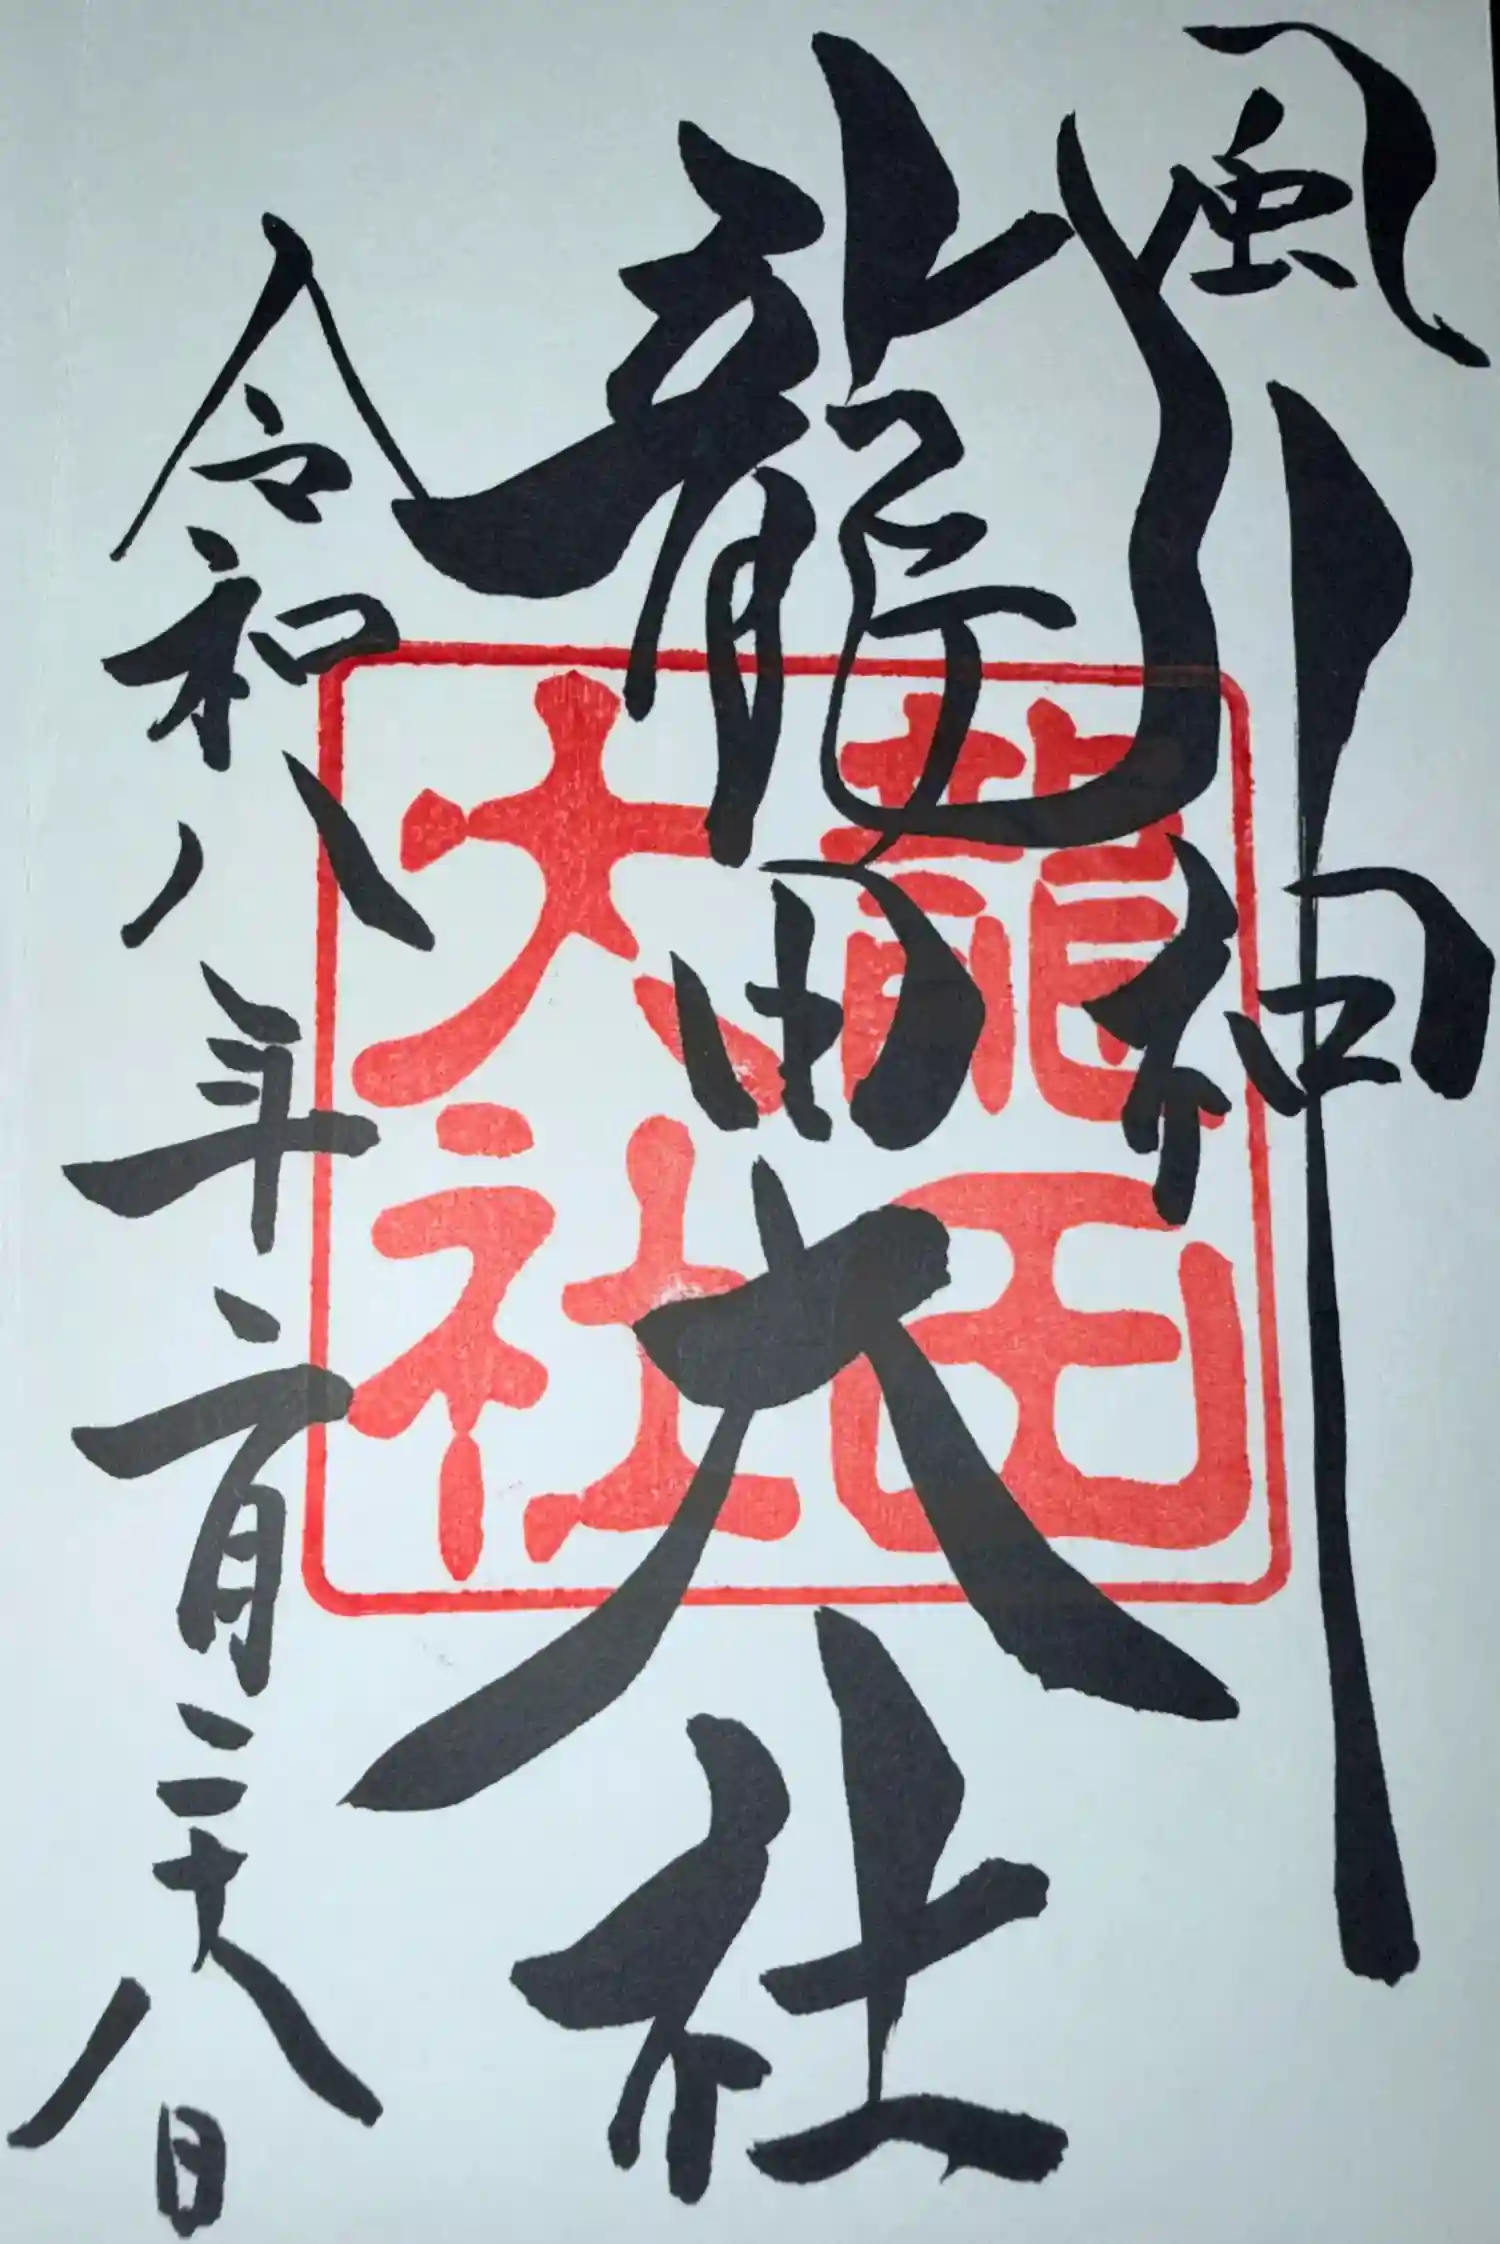 風神
龍田大社
龍田
大社
令和八年二月二十八日